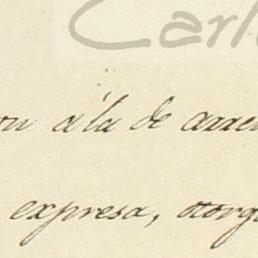 Carl
on á la de arren
expresa, otorg